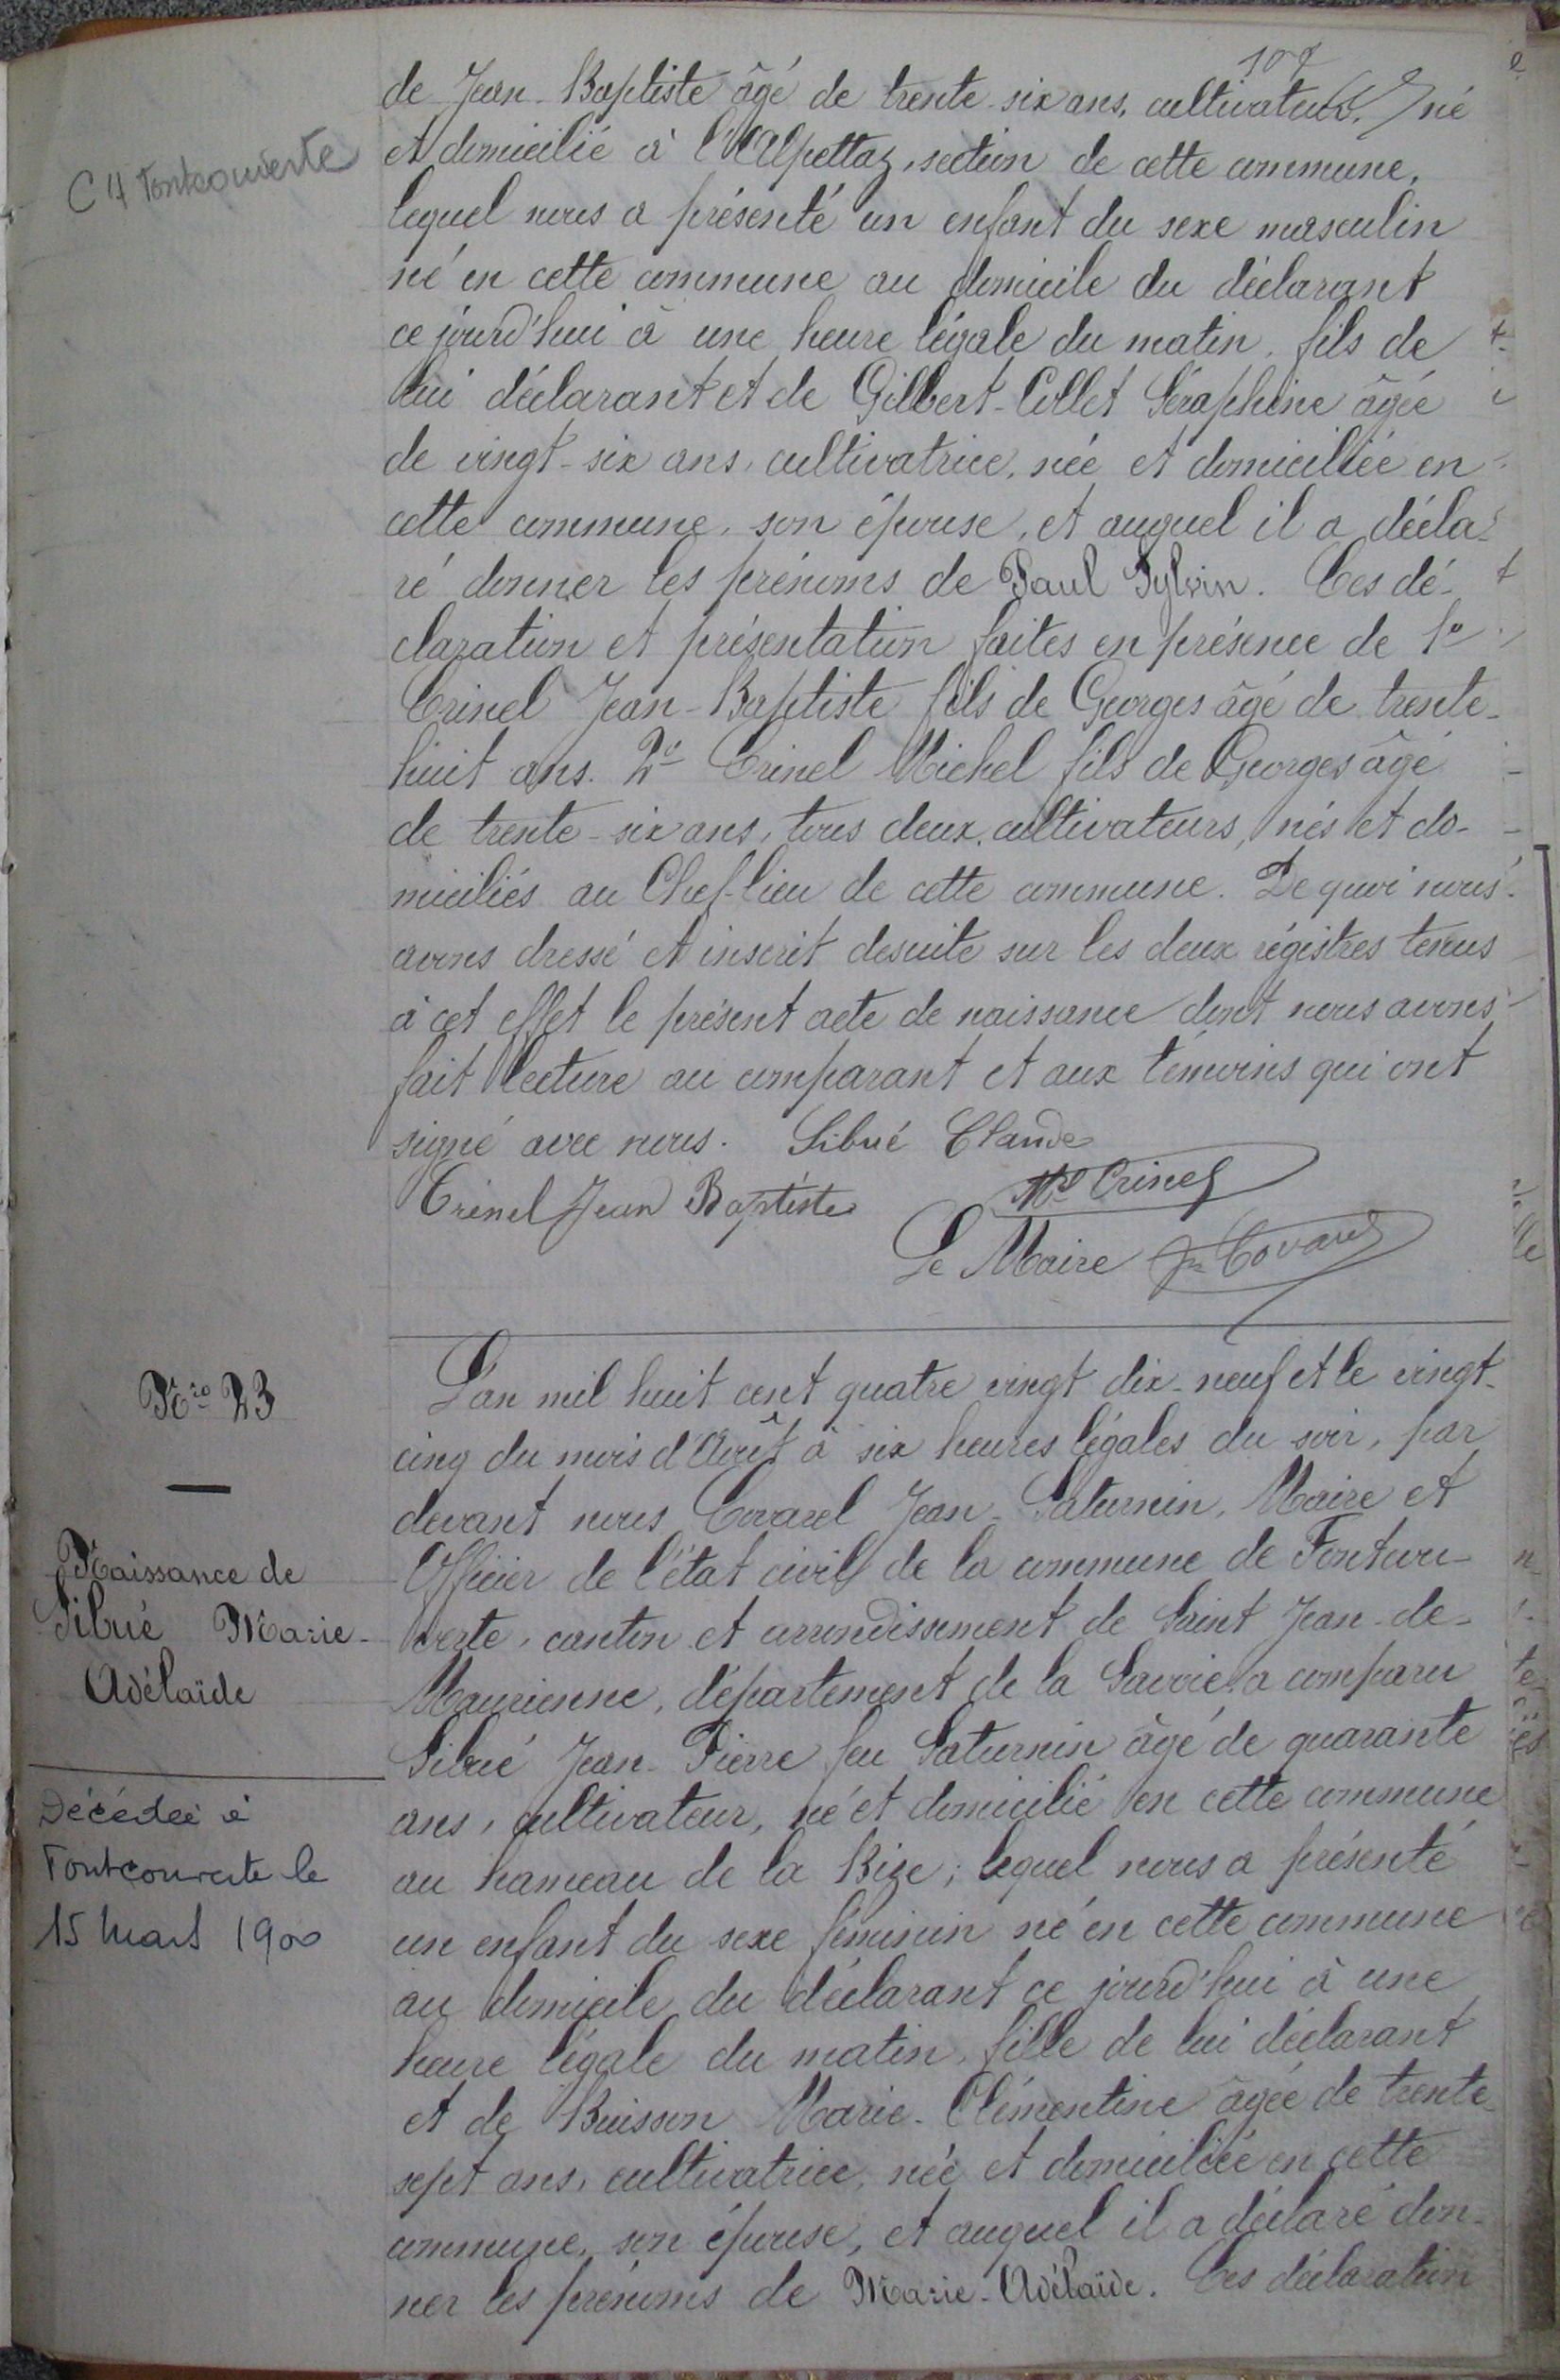 de Jean-Baptiste âgé de trente-six ans, cultivateur, né
et domicilié à l'Alpettaz, section de cette commune,
lequel nous a présenté un enfant du sexe masculin
né en cette commune au domicile du déclarant
ce jourd'hui à une heure légale du matin, fils de
lui déclarant et de Gilbert-Collet Séraphine âgée
de vingt-six ans, cultivatrice, née et domiciliée en
cette commune, son épouse, et auquel il a décla-
ré donner les prénoms de Paul Sylvin. Ces dé-
claration et présentation faites en présence de 1º
Crinel Jean-Baptiste fils de Georges âgé de trente-
huit ans. 2º Crinel Michel fils de Georges âgé
de trente-six ans, tous deux cultivateurs, nés et do-
miciliés au Chef-lieu de cette commune. De quoi nous
avons dressé et inscrit desuite sur les deux régistres tenus
à cet effet le présent acte de naissance dont nous avons
fait lecture au comparant et aux témoins qui ont
signé avec nous. Sibué Claude
Crinel Jean Baptiste
Mel Crinel
Le Maire Jn Covarel
Nro 23
Naissance de
Sibué Marie-
Adélaïde
Décédée à
Fontcouverte le
15 Mars 1900
L'an mil huit cent quatre vingt dix-neuf et le vingt-
cinq du mois d'Août à six heures légales du soir, par
devant nous Covarel Jean-Saturnin, Maire et
Officier de l'état civil de la commune de Fontcou-
verte, canton et arrondissement de Saint Jean-de-
Maurienne, département de la Savoie a comparu
Sibué Jean-Pierre feu Saturnin âgé de quarante
ans, cultivateur, né et domicilié en cette commune
au hameau de la Bise; lequel nous a présenté
un enfant du sexe féminin né en cette commune
au domicile du déclarant ce jourd'hui à une
heure légale du matin, fille de lui déclarant
et de Buisson Marie-Clémentine âgée de trente-
sept ans, cultivatrice, née et domiciliée en cette
commune, son épouse, et auquel il a déclaré don-
ner les prénoms de Marie-Adélaïde. Ces déclaration